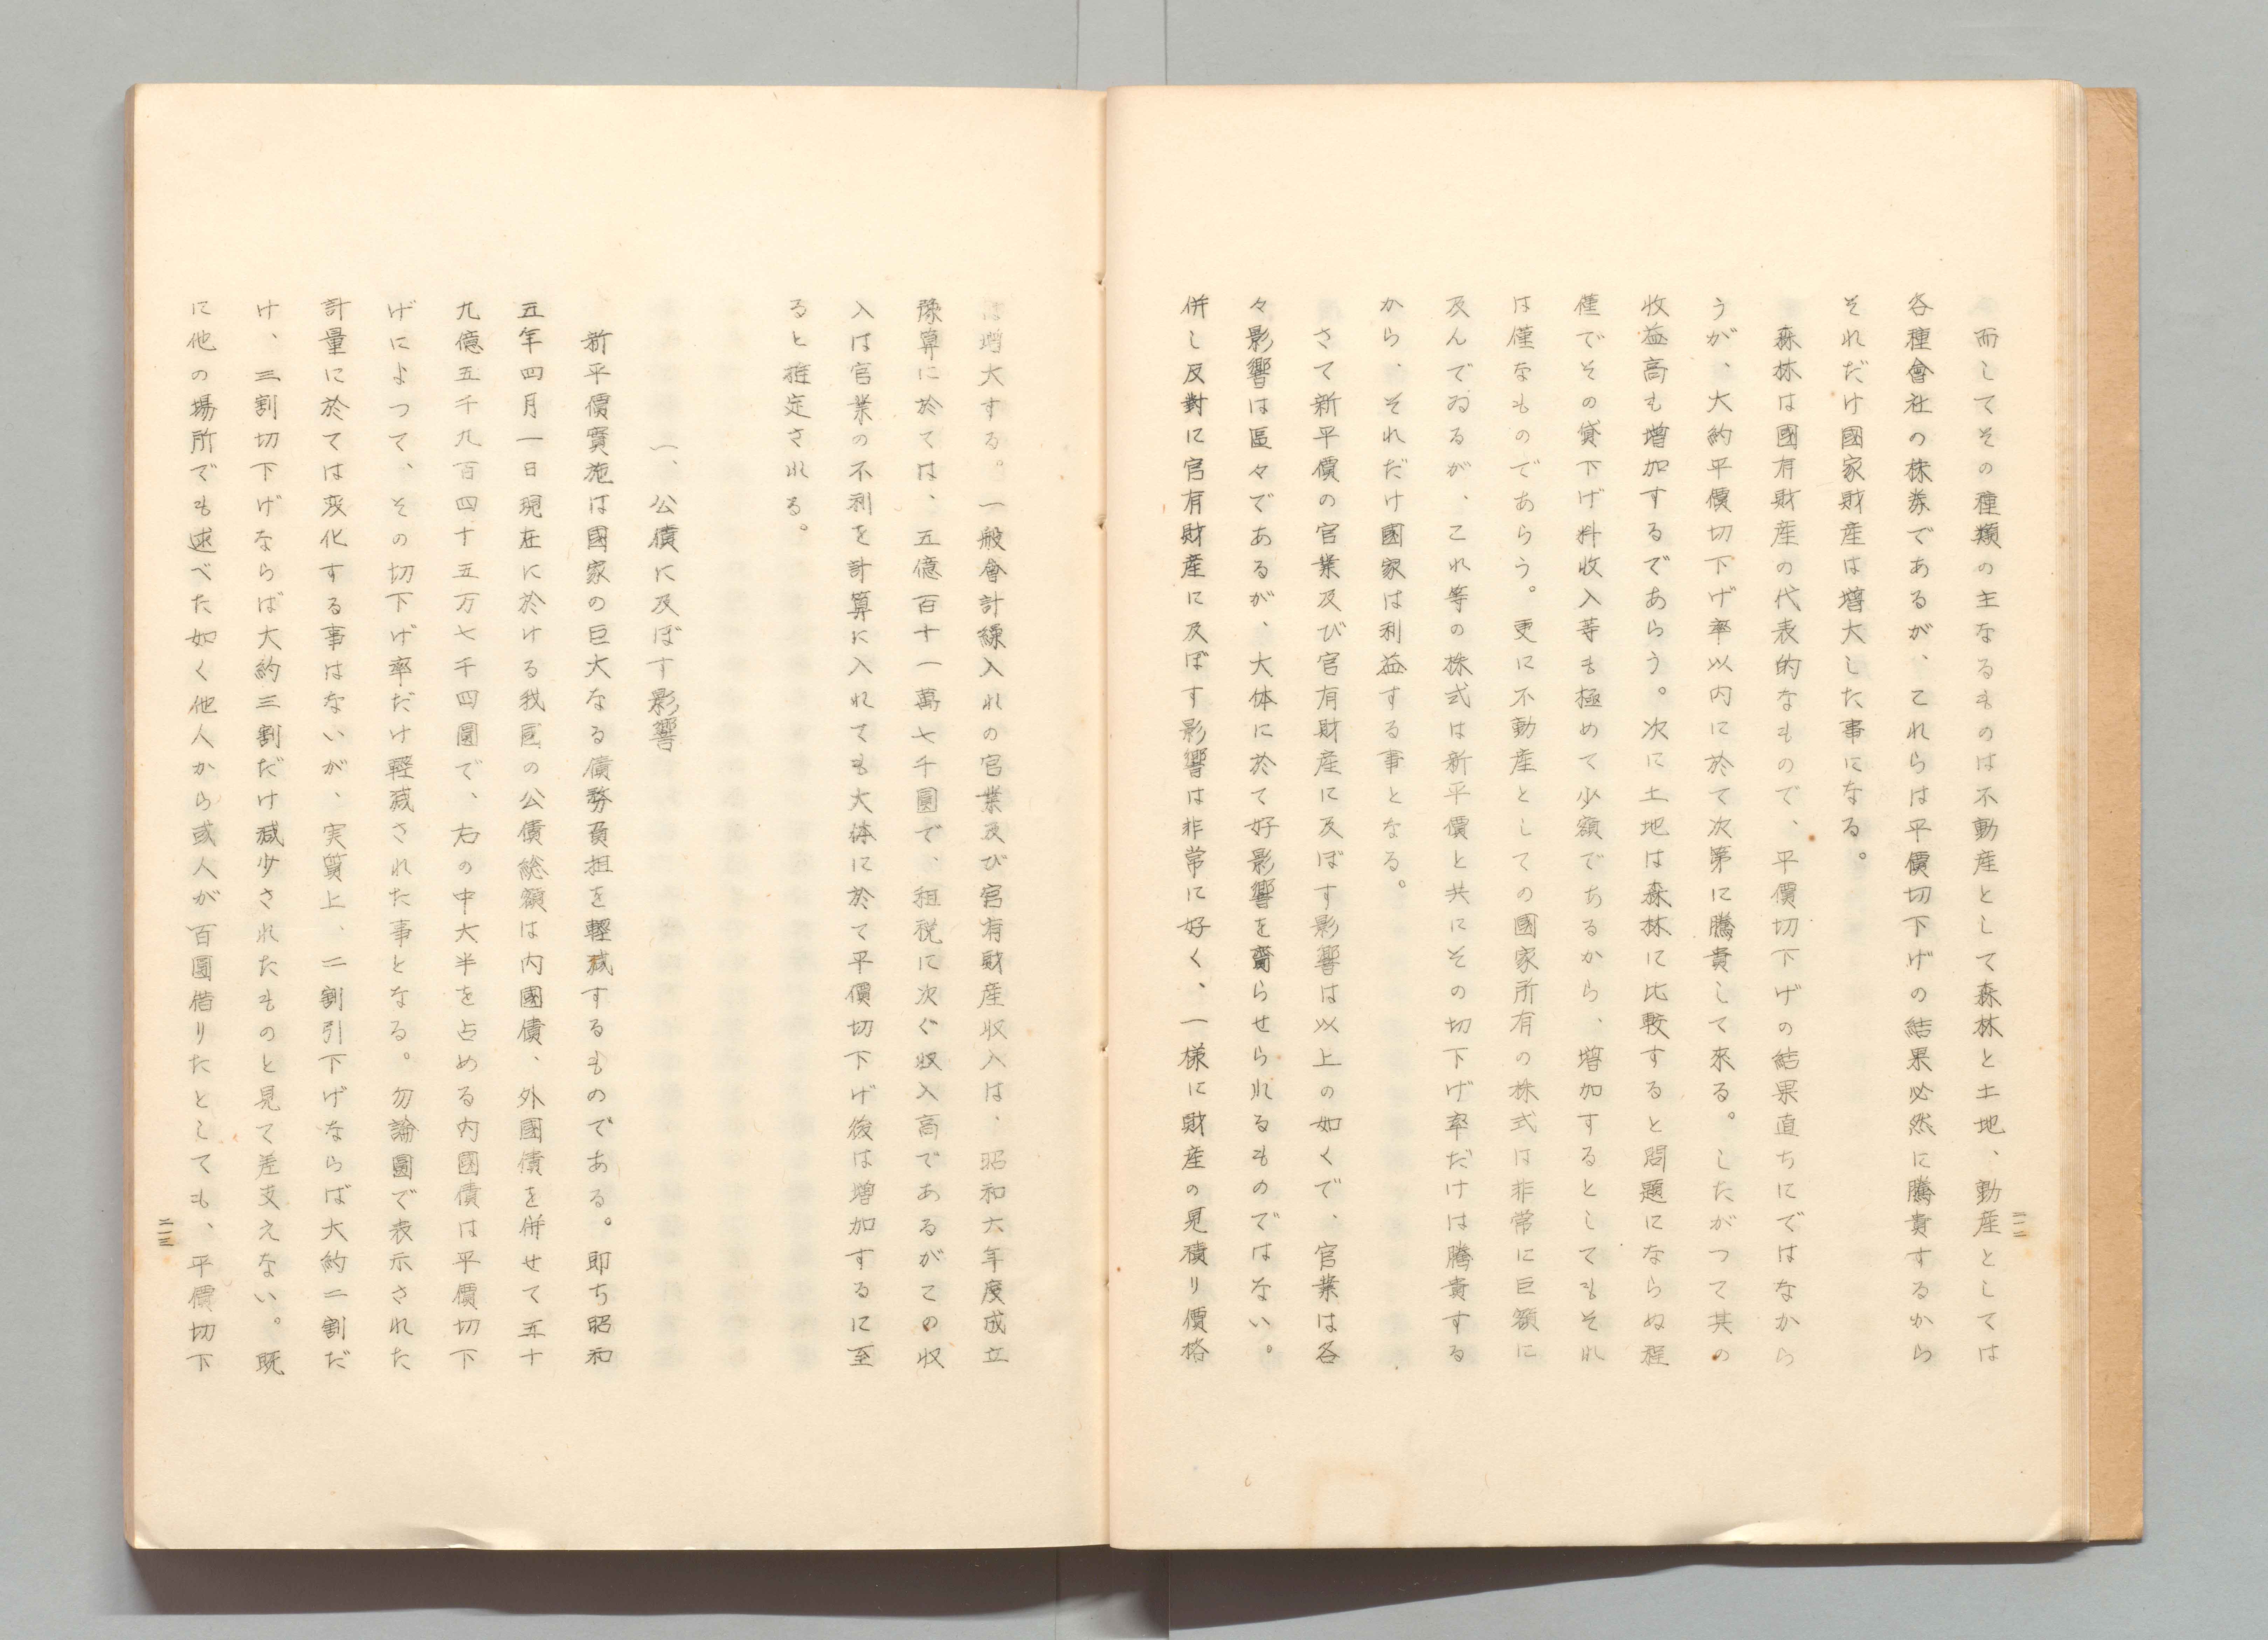 而してその種類の主なるものは不動産として森林と土地、動産としては
各種會社の株券であるが、これらは平價切下げの結果必然に騰貴するから
それだけ國家財産は増大した事になる。
森林は國有財産の代表的なもので、平價切下げの結果直ちにではなから
うが、大約平價切下げ率以内に於て次第に騰貴して來る。したがつて其の
收益高も増加するであらう。次に土地は森林に比較すると問題にならぬ程
僅でその貸下げ料收入等も極めて少額であるから、増加するとしてもそれ
は僅なものであらう。更に不動産としての國家所有の株式は非常に巨額に
及んでゐるが、これ等の株式は新平價と共にその切下げ率だけは騰貴する
から、それだけ國家は利益する事となる。
さて新平價の官業及び官有財産に及ぼす影響は以上の如くで、官業は各
々影響は區々であるが、大体に於て好影響を齎らせられるものではない。
併し反對に官有財産に及ぼす影響は非常に好く、一様に財産の見積り價格
二二
は増大する。一般會計繰入れの官業及び官有財産収入は、昭和六年度成立
豫算に於ては、五億百十一萬七千圓で、租税に次ぐ収入高であるがこの収
入は官業の不利を計算に入れても大体に於て平價切下げ後は増加するに至
ると推定される。
一、公債に及ぼす影響
新平價實施は國家の巨大なる債務負担を軽減するものである。即ち昭和
五年四月一日現在に於ける我國の公債総額は内國債、外國債を併せて五十
九億五千九百四十五万七千四圓で、右の中大半を占める内國債は平價切下
げによつて、その切下げ率だけ軽減された事となる。勿論圓で表示された
計量に於ては変化する事はないが、実質上、二割引下げならば大約二割だ
け、三割切下げならば大約三割だけ減少されたものと見て差支えない。既
に他の場所でも述べた如く他人から或人が百圓借りたとしても、平價切下
二三